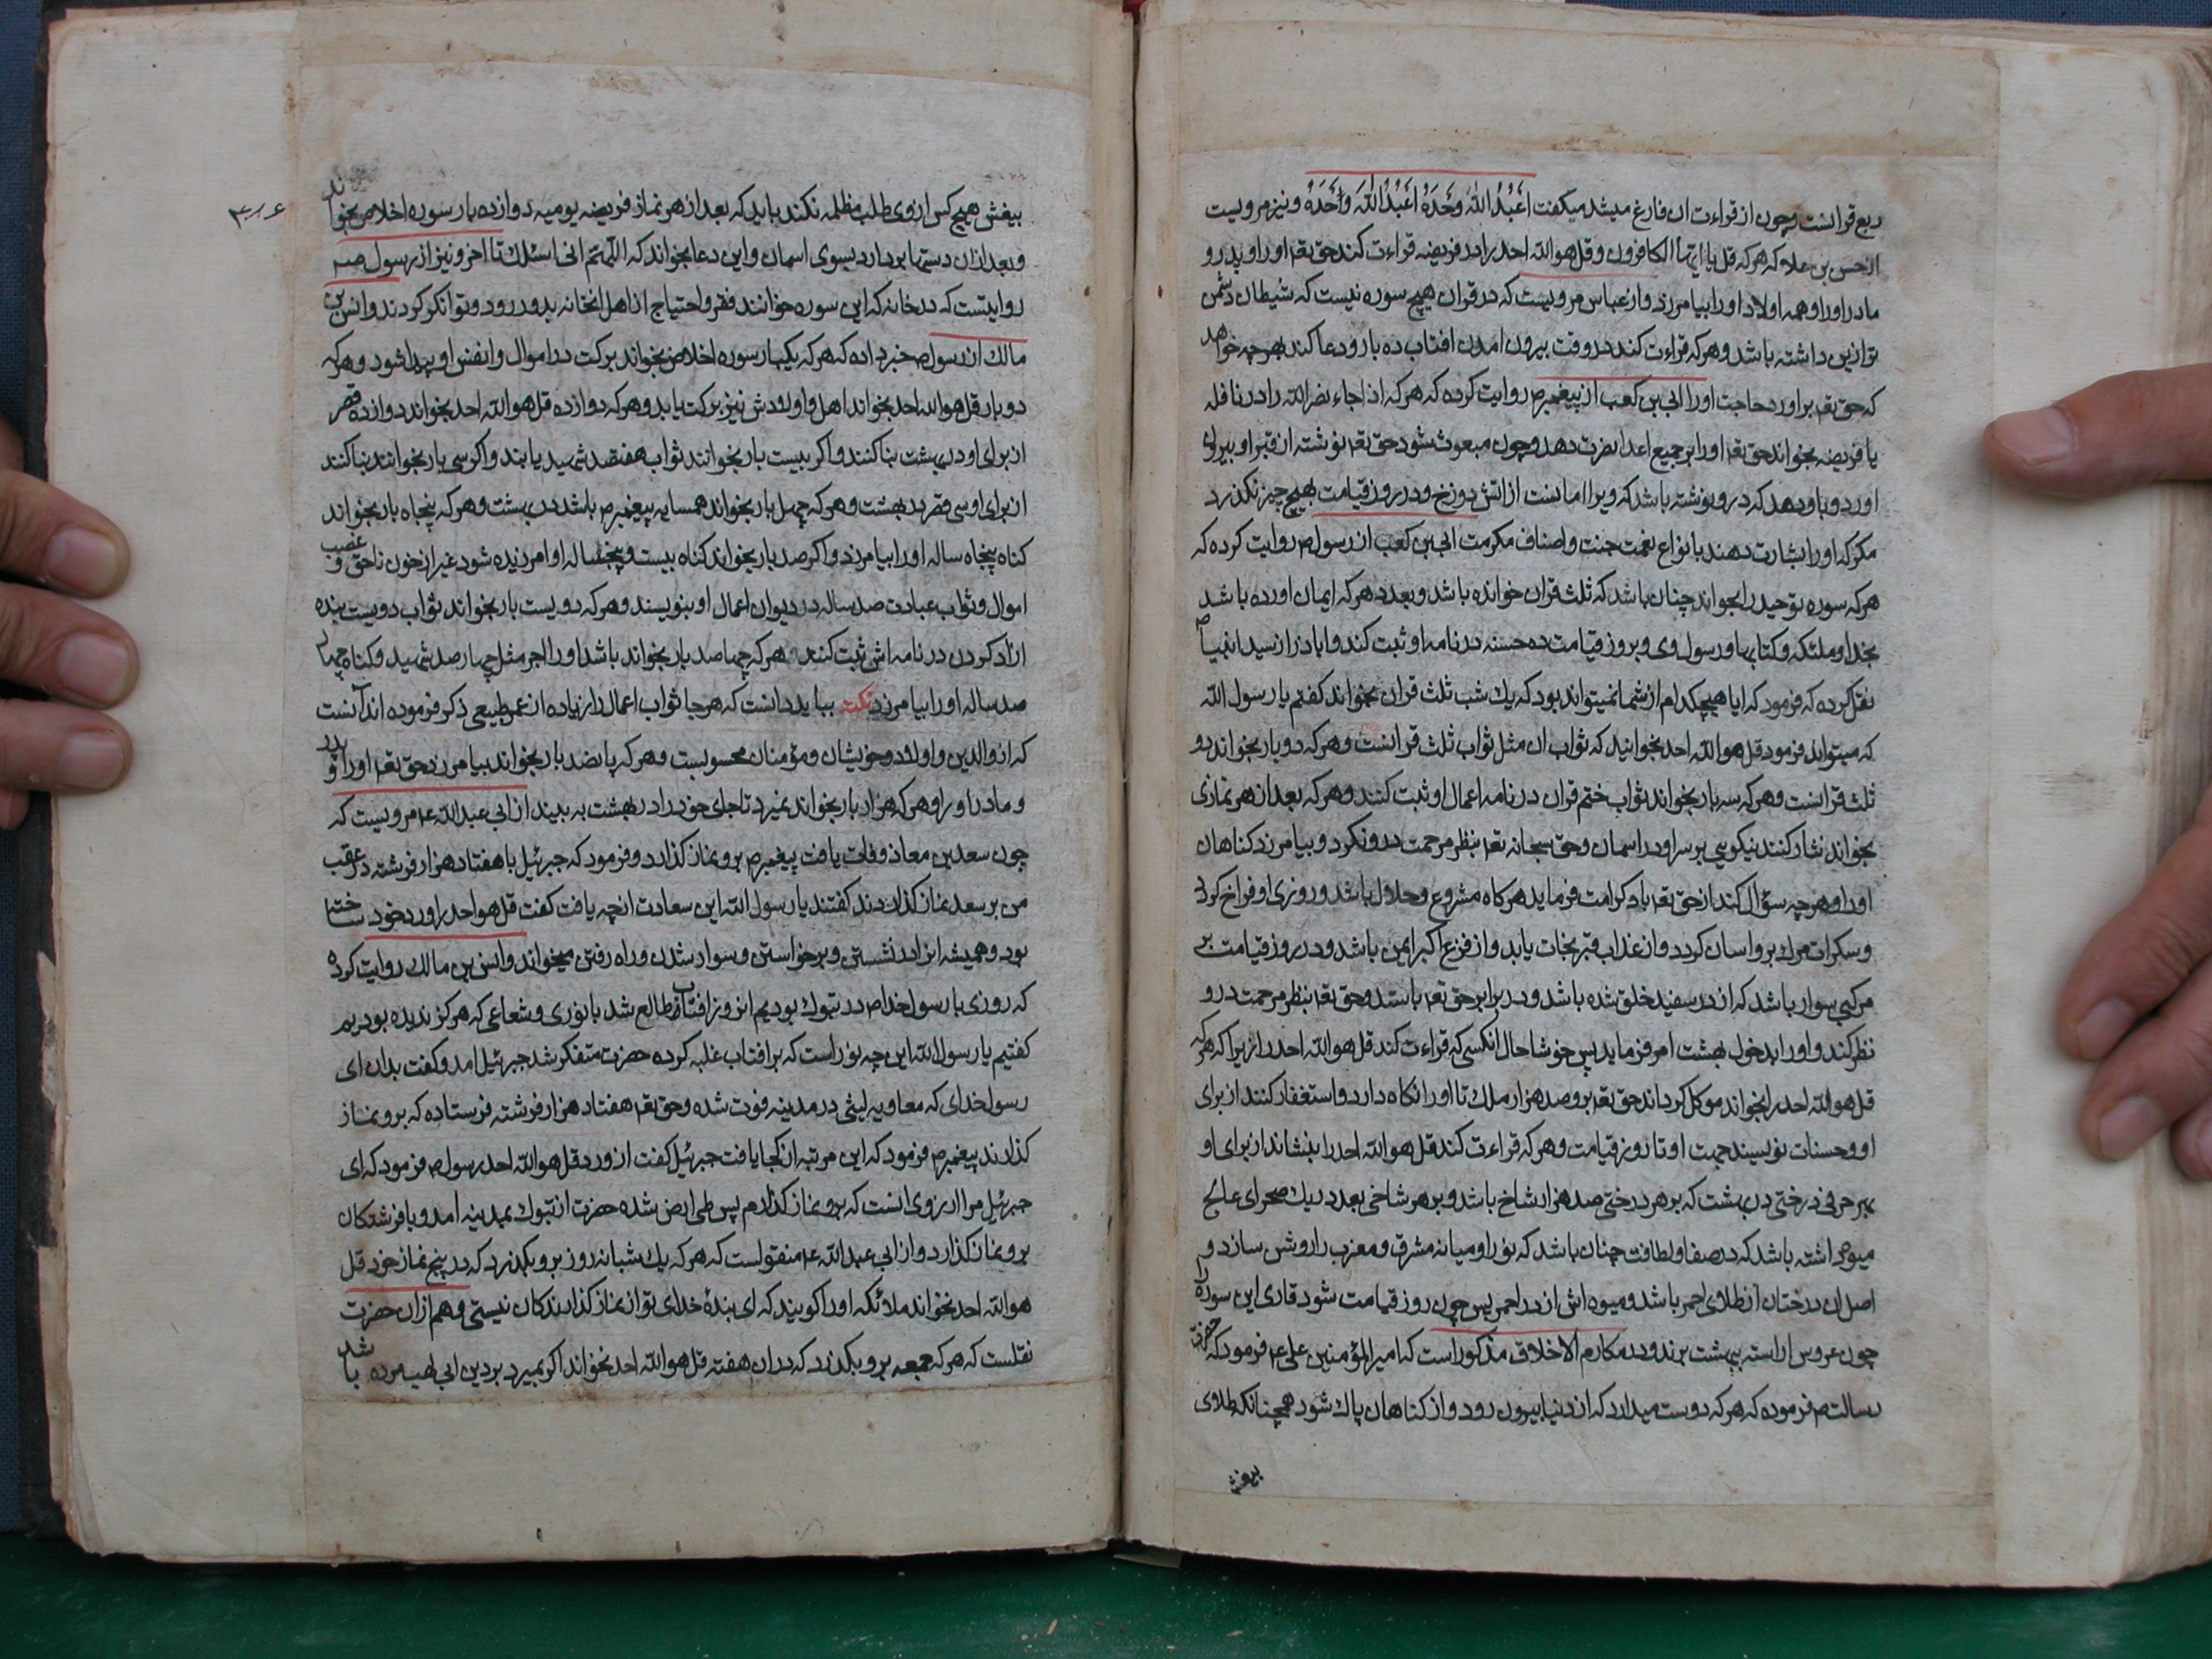 ربع قرانست و چون از قراءت ان فارغ میشد میکفت اَعْبُدُ اللّٰهَ وَحْدَهُ اَعْبُدُ اللّٰهَ وَحْدَهُ و نیز مرویست
از حسن بن علا که هر که قل یا ایها الکافرون و قل هو الله احد را در فریضه قراءت کند حق تعه او را و پدر و
مادر او را و همه اولاد او را بیامرزد و از عباس مرویست که در قران هیچ سوره نیست که شیطان دشمن
تر ازین داشته باشد و هر که قراءت کند در وقت بیرون امدن افتاب ده بار و دعا کند بهر چه خواهد
که حق تعه براورد حاجت او را ابی بن کعب از پیغمبرص روایت کرده که هر که اذا جاء نصر الله را در نافله
یا فریضه بخواند حق تعه او را بر جمیع اعدا نصرت دهد و چون مبعوث شود حق تعه نوشته از قبر او بیرون
اورد و باو دهد که درو نوشته باشد که ویرا امانست از اتش دوزخ و در روز قیامت بهیچ چیز نکذرد
مکر که او را بشارت دهند بانواع نعمت جنت و اصناف مکرمت ابی بن کعب از رسولص روایت کرده که
هر که سوره توحید را بخواند چنان باشد که ثلث قران خوانده باشد و بعدد هر که ایمان اورده باشد
بخدا و ملئکه و کتابها و رسول وی و بروز قیامت ده حسنه در نامه او ثبت کند و اباذر از سید انبیاص
نقل کرده که فرمود که ایا هیچکدام از شما نمیتواند بود که یك شب ثلث قران بخواند کفتم یا رسول الله
که میتواند فرمود قل هو الله احد بخوانید که ثواب ان مثل ثواب ثلث قرانست و هر که دو بار بخواند دو
ثلث قرانست و هر که سه بار بخواند ثواب ختم قران در نامه اعمال او ثبت کنند و هر که بعد از هر نمازی
بخواند نثار کنند نیکویی بر سر او در اسمان و حق سبحانه تعه بنظر مرحمت درو نکرد و بیامرزد کناهان
او را و هر چه سؤال کند از حق تعه باد کرامت فرماید هر کاه مشروع و حلال باشد و روزی او فراخ کردد
و سکرات مرك برو اسان کردد و از عذاب قبر نجات یابد و از فزع اکبر ایمن باشد و در روز قیامت بر
مرکبی سوار باشد که از در سفید خلق شده باشد و در برابر حق تعه باستد و حق تعه بنظر مرحمت درو
نظر کند و او را بدخول بهشت امر فرماید پس خوشا حال انکسی که قراءت کند قل هو الله احد را زیرا که هر که
قل هو الله احد را بخواند موکل کرداند حق تعه برو صد هزار ملك تا او را نکاه دارد و استغفار کنند از برای
او و حسنات نویسند جهت او تا روز قیامت و هر که قراءت کند قل هو الله احد را بنشاند از برای او
بهر حرفی درختی در بهشت که بر هر درختی صد هزار شاخ باشد و بر هر شاخی بعدد ریك صحرای عالج
میوه داشته باشد که در صفا و لطافت چنان باشد که نور او میانه مشرق و مغرب را روشن سازد و
اصل ان درختان از طلای احمر باشد و میوه اش از در احمر پس چون روز قیامت شود قاری این سوره را
چون عروس اراسته ببهشت برند و در مکارم الاخلاق مذکور است که امیر المؤمنین علی ع فرمود که حضرت
رسالت ص فرموده که هر که دوست میدارد که از دنیا بیرون رود و از کناهان پاك شود همچنانکه طلای
بیغش
بیغش هیچ کس از وی طلب مظلمه نکند باید که بعد از هر نماز فریضه یومیه دوازده بار سوره اخلاص بخواند
و بعد ازان دستها بردارد بسوی اسمان و این دعا بخواند که اللّهم انی اسئلك تا اخر و نیز از رسول صم
روایتست که در خانه که این سوره خوانند فقر و احتیاج از اهل انخانه بدور رود و توانکر کردند و انس بن
مالك از رسولص خبر داده که هر که یکبار سوره اخلاص بخواند برکت در اموال و انفس او پیدا شود و هر که
دو بار قل هو الله احد بخواند اهل و اولادش نیز برکت یابد و هر که دوازده قل هو الله احد بخواند دوازده قصر
از برای او در بهشت بنا کنند و اکر بیست بار بخوانند ثواب هفتصد شهید یابند و اکر سی بار بخوانند بنا کنند
از برای او سی قصر در بهشت و هر که چهل بار بخواند همسایه پیغمبرص باشد در بهشت و هر که پنجاه بار بخواند
کناه پنجاه ساله او را بیامرزد و اکر صد بار بخواند کناه بیست و پنجساله او امرزیده شود غیر از خون ناحق و غصب
اموال و ثواب عبادت صد ساله در دیوان اعمال او بنویسند و هر که دویست بار بخواند ثواب دویست بنده
ازاد کردن در نامه اش ثبت کنند و هر که چهار صد بار بخواند باشد او را اجر مثل چهار صد شهید و کناه چهار
صد ساله او را بیامرزد نکته بباید دانست که هر جا ثواب اعمال را زیاده از عمر طبیعی ذکر فرموده اند انست
که از والدین و اولاد و خویشان و مؤمنان محسوبست و هر که پانصد بار بخواند بیامرزد حق تعه او را و پدر
و مادر او را و هر که هزار بار بخواند نمیرد تا جای خود را در بهشت به بیند از ابی عبد الله ع مرویست که
چون سعد بن معاذ وفات یافت پیغمبرص برو نماز کذارد و فرمود که جبرئیل با هفتاد هزار فرشته در عقب
من بر سعد نماز کذاردند کفتند یا رسول الله این سعادت از چه یافت کفت قل هو احد را ورد خود ساخته
بود و همیشه انرا در نشستن و برخواستن و سوار شدن و راه رفتن میخواند و انس بن مالك روایت کرده
که روزی با رسول خداص در تبوك بودیم انروز افتاب طالع شد با نوری و شعاعی که هرکز ندیده بودیم
کفتیم یا رسول الله این چه نور است که بر افتاب غلبه کرده حضرت متفکر شد جبرئیل امد و کفت بدان ای
رسولخدای که معاویه لیثی در مدینه فوت شده و حق تعه هفتاد هزار فرشته فرستاده که برو نماز
کذارند پیغمبرص فرمود که این مرتبه از کجا یافت جبرئیل کفت از ورد قل هو الله احد رسولص فرمود که ای
جبرئیل مرا ارزوی انست که برو نماز کذارم پس طی ارض شده حضرت از تبوك بمدینه امد و با فرشتکان
برو نماز کذارد و از ابی عبد الله ع منقولست که هر که یك شبانه روز برو بکذرد که در پنج نماز خود قل
هو الله احد نخواند ملائکه او را کویند که ای بندهٔ خدای تو از نماز کذارندکان نیستی و هم ازان حضرت
نقلست که هر که جمعه برو بکذرد که دران هفته قل هو الله احد نخواند اکر بمیرد بر دین ابی لهب مرده باشد